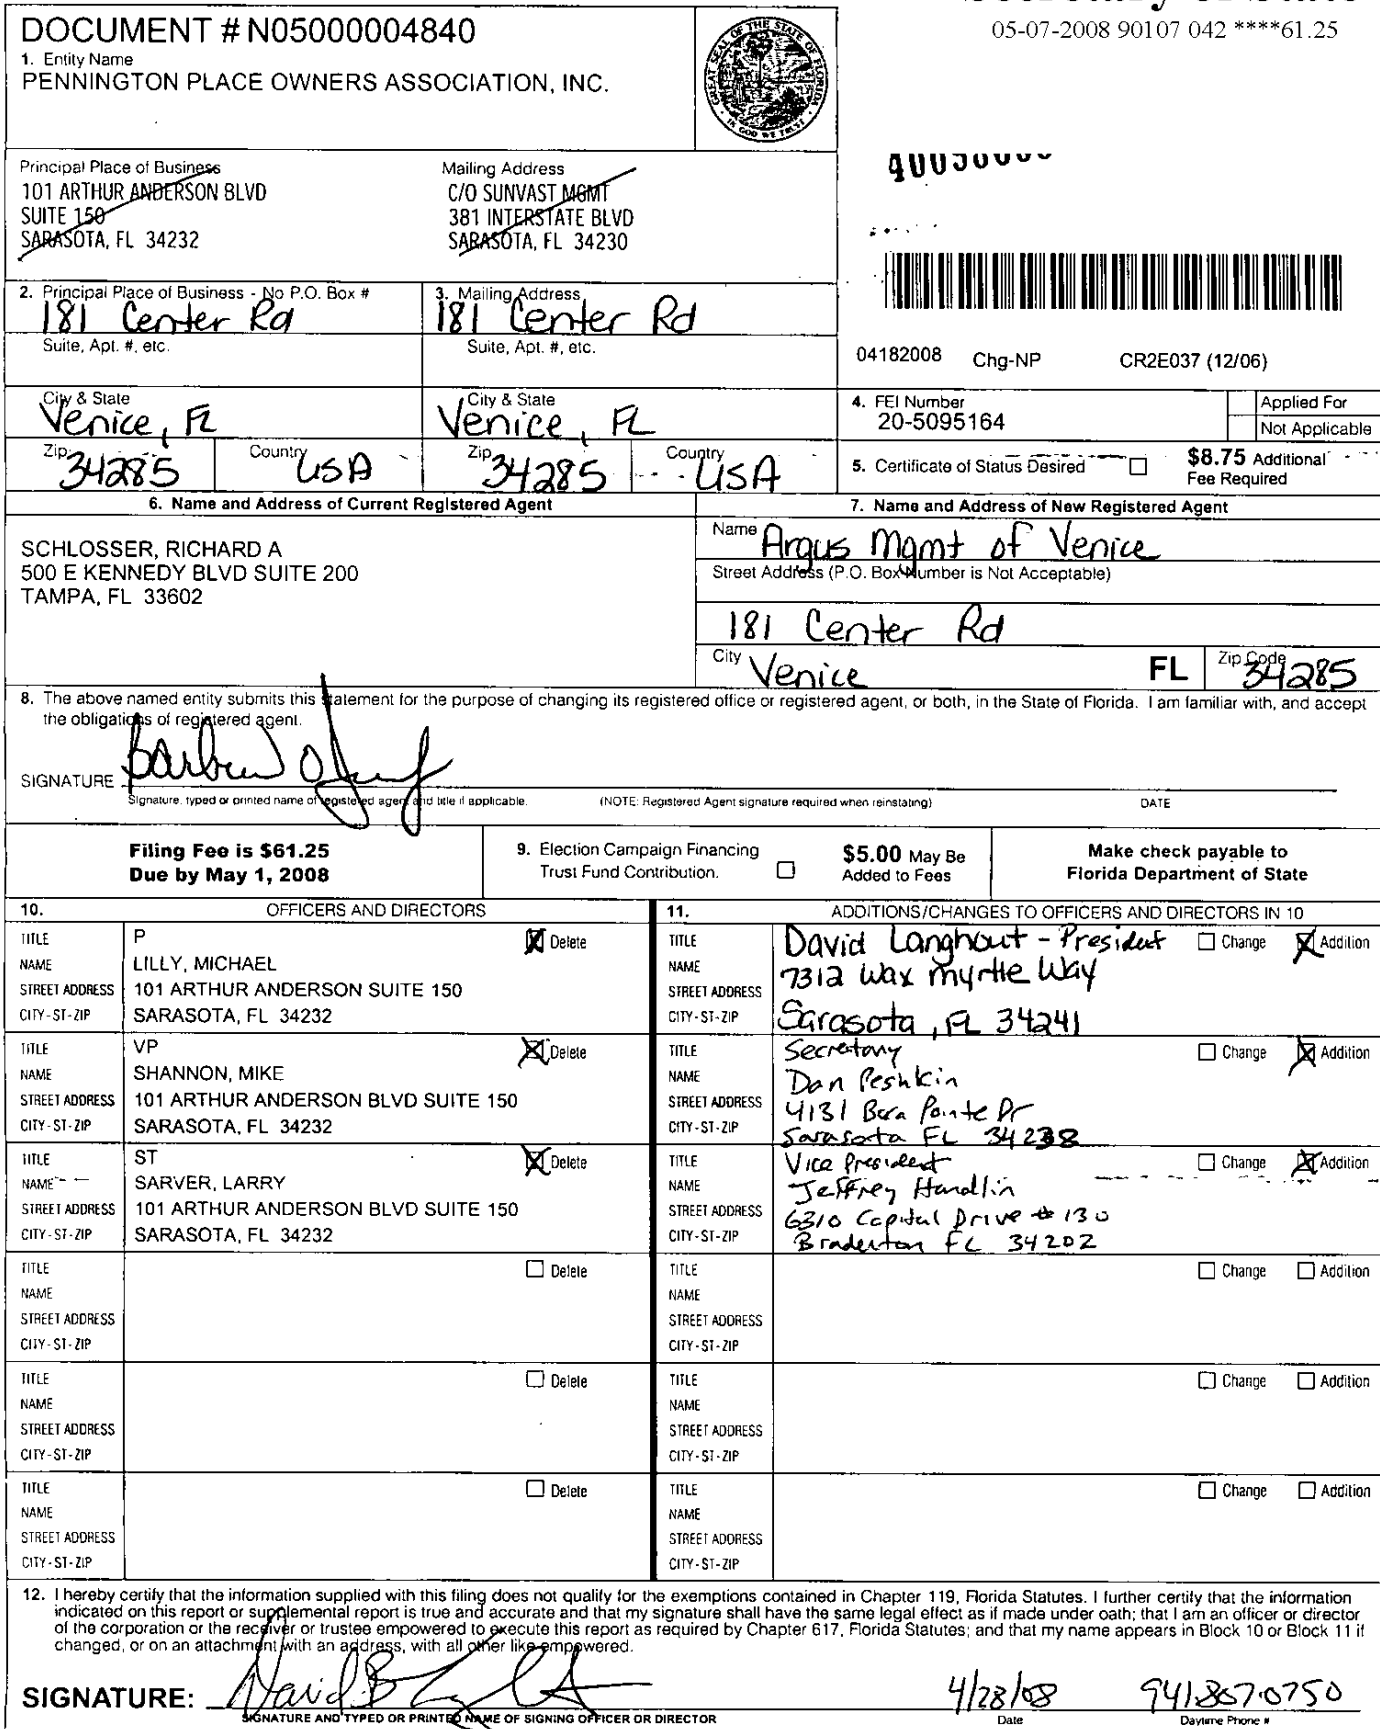 DOCUMENT # N05000004840
05-07-2008 90107 042 ****61.25
1. Entity Name
PENNINGTON PLACE OWNERS ASSOCIATION, INC.
GREAT SEAL OF THE STATE OF FLORIDA
IN GOD WE TRUST
Principal Place of Business
101 ARTHUR ANDERSON BLVD
SUITE 150
SARASOTA, FL 34232
Mailing Address
C/O SUNVAST MGMT
381 INTERSTATE BLVD
SARASOTA, FL 34230
2. Principal Place of Business - No P.O. Box #
181 Center Rd
Suite, Apt. #, etc.
3. Mailing Address
181 Center Rd
Suite, Apt. #, etc.
04182008 Chg-NP CR2E037 (12/06)
City & State
Venice, FL
City & State
Venice, FL
4. FEI Number
20-5095164
Applied For
Not Applicable
Zip
34285
Country
USA
Zip
34285
Country
USA
5. Certificate of Status Desired
$8.75 Additional
Fee Required
6. Name and Address of Current Registered Agent
SCHLOSSER, RICHARD A
500 E KENNEDY BLVD SUITE 200
TAMPA, FL 33602
7. Name and Address of New Registered Agent
Name Argus Mgmt of Venice
Street Address (P.O. Box Number is Not Acceptable)
181 Center Rd
City Venice FL Zip Code 34285
8. The above named entity submits this statement for the purpose of changing its registered office or registered agent, or both, in the State of Florida. I am familiar with, and accept
the obligations of registered agent.
SIGNATURE
Signature, typed or printed name of registered agent and title if applicable. (NOTE: Registered Agent signature required when reinstating) DATE
Filing Fee is $61.25
Due by May 1, 2008
9. Election Campaign Financing
Trust Fund Contribution.
$5.00 May Be
Added to Fees
Make check payable to
Florida Department of State
10. OFFICERS AND DIRECTORS
TITLE P Delete
NAME LILLY, MICHAEL
STREET ADDRESS 101 ARTHUR ANDERSON SUITE 150
CITY-ST-ZIP SARASOTA, FL 34232
TITLE VP Delete
NAME SHANNON, MIKE
STREET ADDRESS 101 ARTHUR ANDERSON BLVD SUITE 150
CITY-ST-ZIP SARASOTA, FL 34232
TITLE ST Delete
NAME SARVER, LARRY
STREET ADDRESS 101 ARTHUR ANDERSON BLVD SUITE 150
CITY-ST-ZIP SARASOTA, FL 34232
TITLE Delete
NAME
STREET ADDRESS
CITY-ST-ZIP
TITLE Delete
NAME
STREET ADDRESS
CITY-ST-ZIP
TITLE Delete
NAME
STREET ADDRESS
CITY-ST-ZIP
11. ADDITIONS/CHANGES TO OFFICERS AND DIRECTORS IN 10
TITLE David Langhout - President Change Addition
NAME 7312 Wax Myrtle Way
STREET ADDRESS
CITY-ST-ZIP Sarasota, FL 34241
TITLE Secretary Change Addition
NAME Dan Peshkin
STREET ADDRESS 4131 Boca Pointe Dr
CITY-ST-ZIP Sarasota FL 34238
TITLE Vice President Change Addition
NAME Jeffrey Handlin
STREET ADDRESS 6310 Capital Drive # 130
CITY-ST-ZIP Bradenton FL 34202
TITLE Change Addition
NAME
STREET ADDRESS
CITY-ST-ZIP
TITLE Change Addition
NAME
STREET ADDRESS
CITY-ST-ZIP
TITLE Change Addition
NAME
STREET ADDRESS
CITY-ST-ZIP
12. I hereby certify that the information supplied with this filing does not qualify for the exemptions contained in Chapter 119, Florida Statutes. I further certify that the information
indicated on this report or supplemental report is true and accurate and that my signature shall have the same legal effect as if made under oath; that I am an officer or director
of the corporation or the receiver or trustee empowered to execute this report as required by Chapter 617, Florida Statutes; and that my name appears in Block 10 or Block 11 if
changed, or on an attachment with an address, with all other like empowered.
SIGNATURE: David B 4/28/08 941.867.0750
SIGNATURE AND TYPED OR PRINTED NAME OF SIGNING OFFICER OR DIRECTOR Date Daytime Phone #